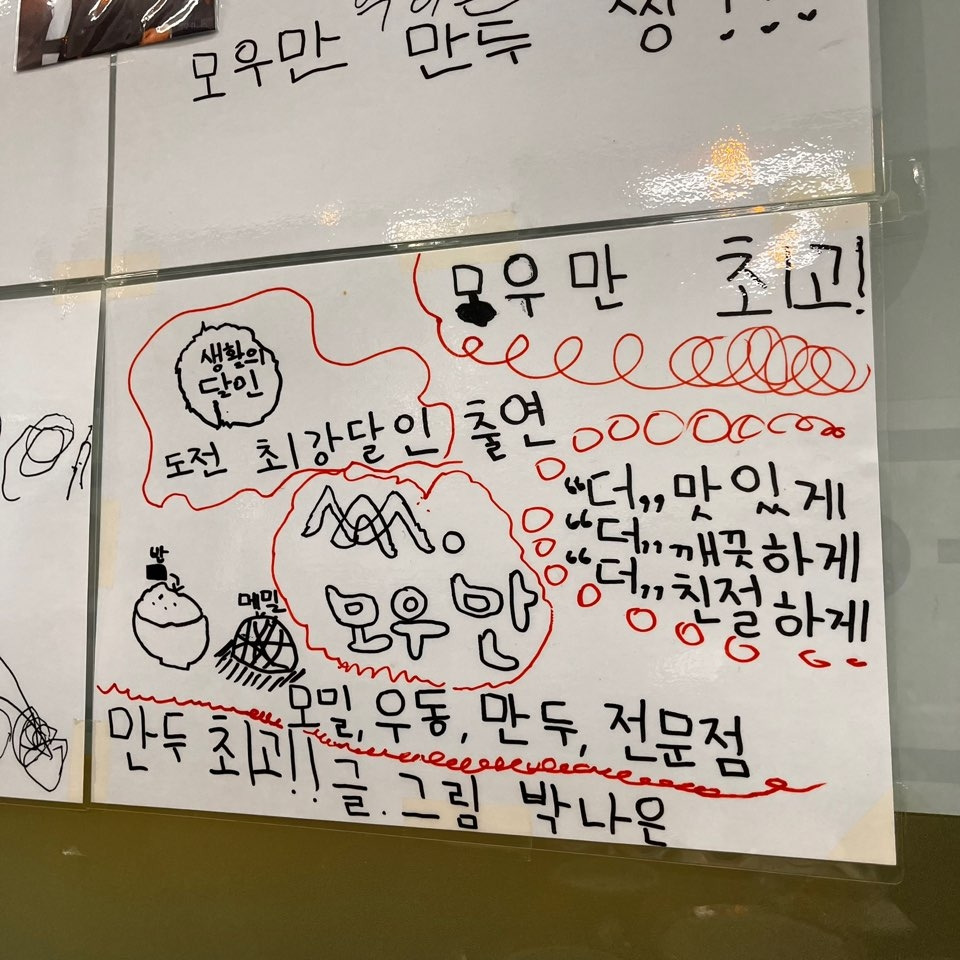 모우만 만두 짱!!!
모우만 최고!
생활의
달인
도전 최강달인 출연
"더,, 맛있게
"더,, 깨끗하게
"더,, 친절하게
모우만
메밀
모밀, 우동, 만두, 전문점
만두 최고!! 글.그림 박나은